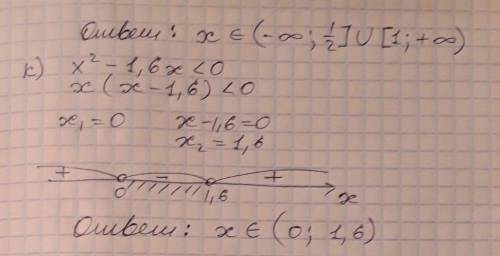 Ответ: x ∈ (-∞; 1/2] ∪ [1; +∞)
к) x² - 1,6x < 0
x (x - 1,6) < 0
x₁ = 0    x - 1,6 = 0
x₂ = 1,6
+ − +
0 1,6 x
Ответ: x ∈ (0; 1,6)